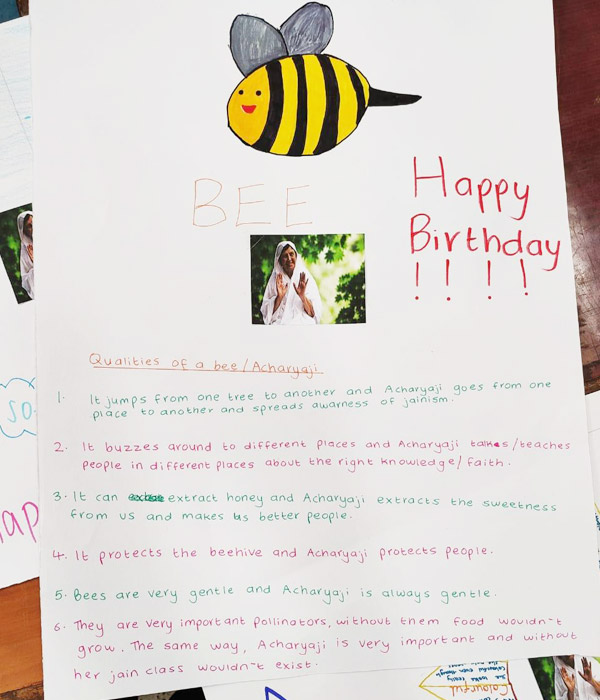 BEE
Happy
Birthday
!!!!
Qualities of a bee/Acharyaji
1. It jumps from one tree to another and Acharyaji goes from one
place to another and spreads awarness of jainism.
2. It buzzes around to different places and Acharyaji talkes/teaches
people in different places about the right knowledge/faith.
3. It can extract honey and Acharyaji extracts the sweetness
from us and makes us better people.
4. It protects the beehive and Acharyaji protects people.
5. Bees are very gentle and Acharyaji is always gentle.
6. They are very important pollinators, without them food wouldn't
grow. The same way, Acharyaji is very important and without
her jain class wouldn't exist.
SO
ap
Colourful